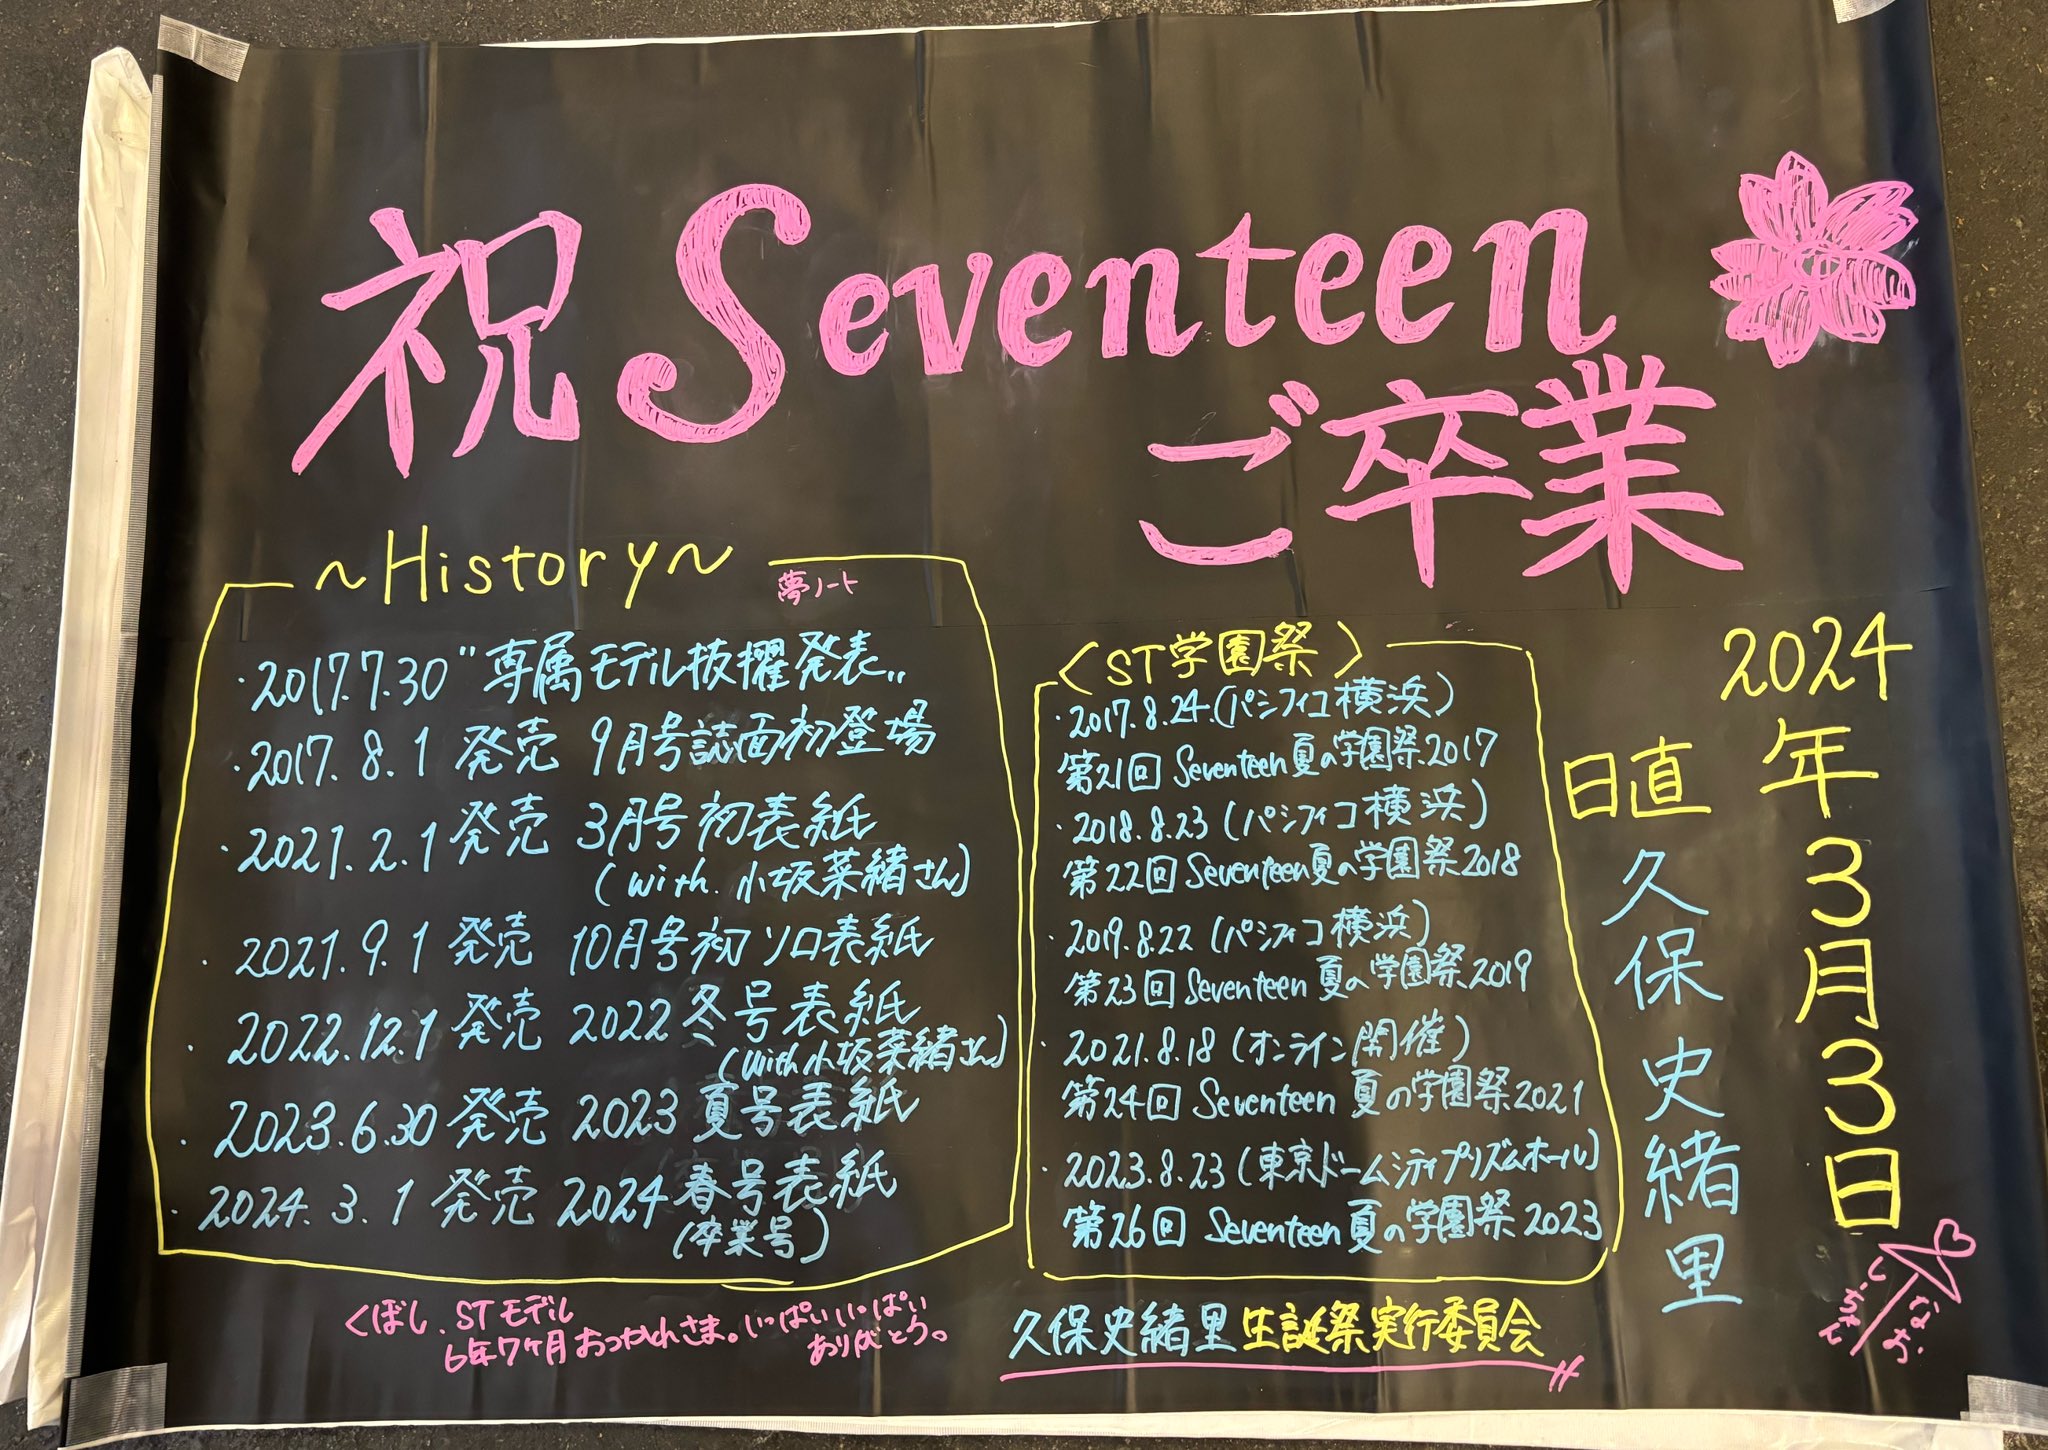 祝 Seventeen
ご卒業
~History~
夢ノート
・2017.7.30 "専属モデル抜擢発表"
・2017.8.1 発売 9月号誌面初登場
・2021.2.1 発売 3月号初表紙
(with 小坂菜緒さん)
・2021.9.1 発売 10月号初ソロ表紙
・2022.12.1 発売 2022 冬号表紙
(with 小坂菜緒さん)
・2023.6.30 発売 2023 夏号表紙
・2024.3.1 発売 2024 春号表紙
(卒業号)
〈ST学園祭〉
・2017.8.24.(パシフィコ横浜)
第21回 Seventeen夏の学園祭2017
・2018.8.23 (パシフィコ横浜)
第22回 Seventeen夏の学園祭2018
・2019.8.22 (パシフィコ横浜)
第23回 Seventeen夏の学園祭2019
・2021.8.18 (オンライン開催)
第24回 Seventeen 夏の学園祭2021
・2023.8.23 (東京ドームシティプリズムホール)
第26回 Seventeen夏の学園祭2023
2024年3月3日
日直
久保史緒里
くぼし、STモデル
6年7ヶ月おつかれさま。いっぱいいっぱい
ありがとう。
久保史緒里生誕祭実行委員会
なお
しーちゃん